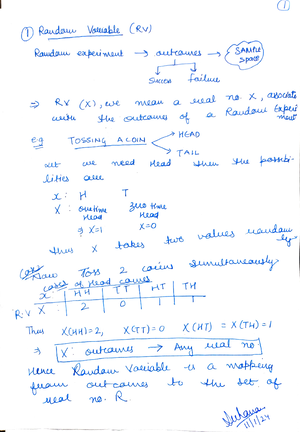 1
① Random Variable (RV)
Random experiment → outcomes → SAMPLE Space
Success Failure
⇒ RV (X), we mean a real no. X, associate
with the outcome of a Random Experiment
eg TOSSING A COIN → HEAD
→ TAIL
let we need Head then the possibi-
lities are
x : H T
X : one time Head zero time Head
⇒ X=1 X=0
thus X takes two values randomly
Now Toss 2 coins simultaneously
cases of Head comes
x HH TT HT TH
R.V X : 2 0 1 1
Thus X(HH)=2, X(TT)=0 X(HT) = X(TH)=1
⇒ X : outcomes → Any real no
Hence Random Variable is a mapping
from outcomes to the set of
real no. R.
11/1/24